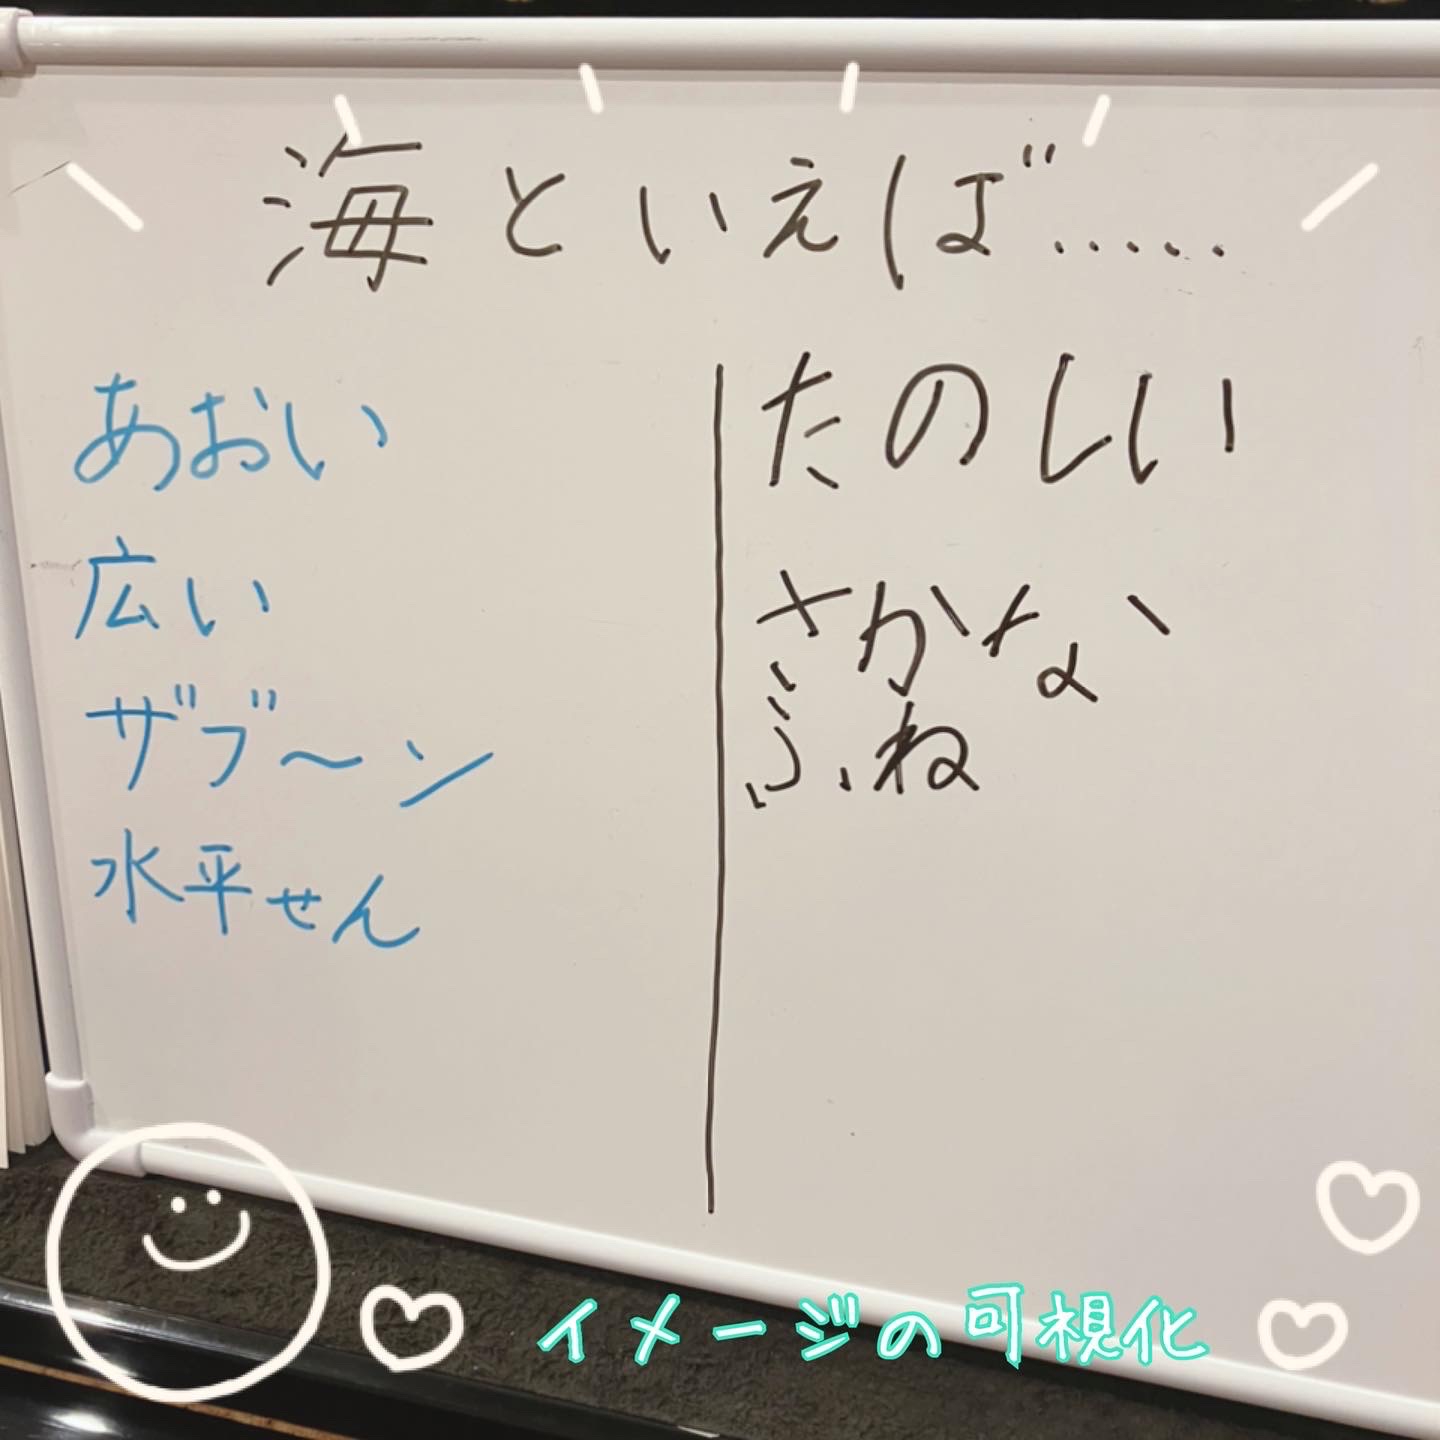 海といえば.....
あおい
広い
ザブ〜ン
水平せん
たのしい
さかな
ふね
イメージの可視化